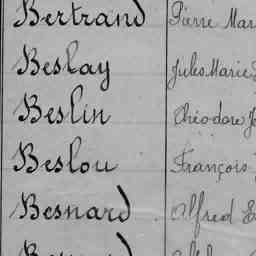 Bertrand Pierre Mar
Beslay Jules Marie
Beslin Théodore J
Beslou François
Besnard Alfred E